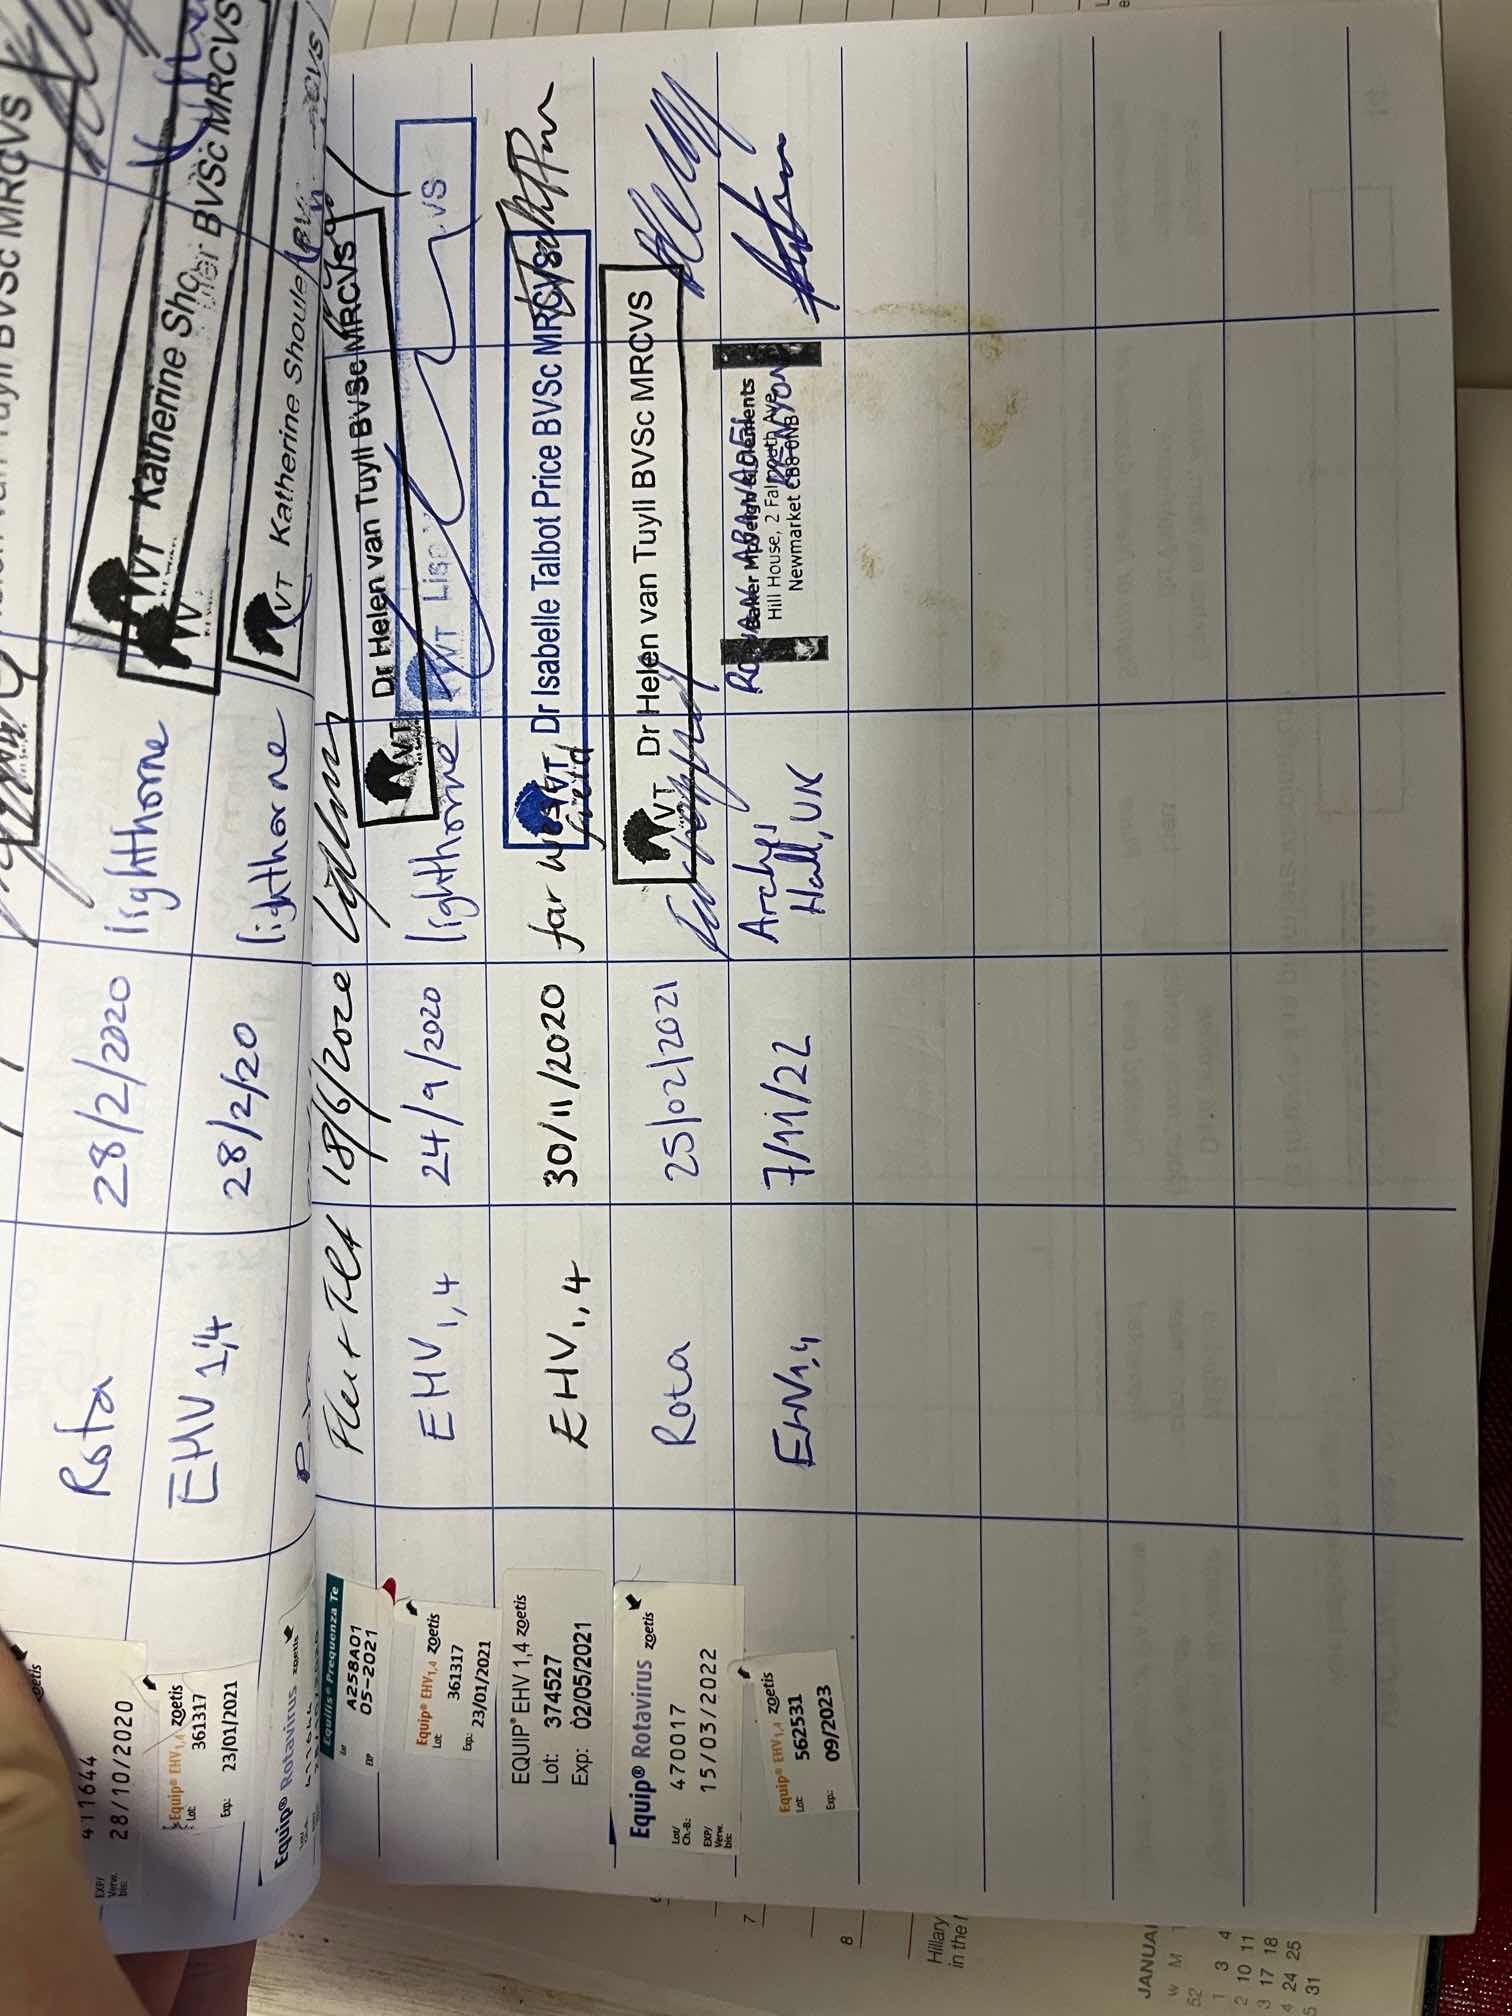 Tuyll BVSc MRCVS
zoetis
411644
EXP/
Verw.
bis:
28/10/2020
Rota
28/2/2020
lighthorne
VT Katherine Sho
Equip® EHV1,4 zoetis
Lot:
361317
Exp.:
23/01/2021
EHV 1,4
28/2/20
lighthorne
BVSc MRCVS
Equip® Rotavirus zoetis
VT Katherine Shoule
Equilis® Prequenza Te
A258A01
EXP
05-2021
Flu + Tet
18/6/2020
VT
Dr Helen van Tuyll BVSc MRCVS
Equip® EHV1,4 zoetis
Lot:
361317
Exp.:
23/01/2021
EHV 1,4
24/9/2020
lighthorne
VT Lisa
VS
EQUIP® EHV 1,4 zoetis
Lot: 374527
Exp: 02/05/2021
EHV 1,4
30/11/2020
far west
field
VT Dr Isabelle Talbot Price BVSc MRCVS
Equip® Rotavirus zoetis
Lot/
Ch.-B.:
470017
EXP/
Verw.
bis:
15/03/2022
Rota
25/02/2021
VT Dr Helen van Tuyll BVSc MRCVS
Equip® EHV1,4 zoetis
Lot:
562531
Exp.:
09/2023
EHV1,4
7/11/22
Archys
Hall, UK
Baker McVeigh & Clements
Hill House, 2 Falmouth Ave
Newmarket CB8 0NB
KENYON
7
8
Hillary
in the
JANUA
W M T
52
1 3 4
2 10 11
3 17 18
4 24 25
5 31